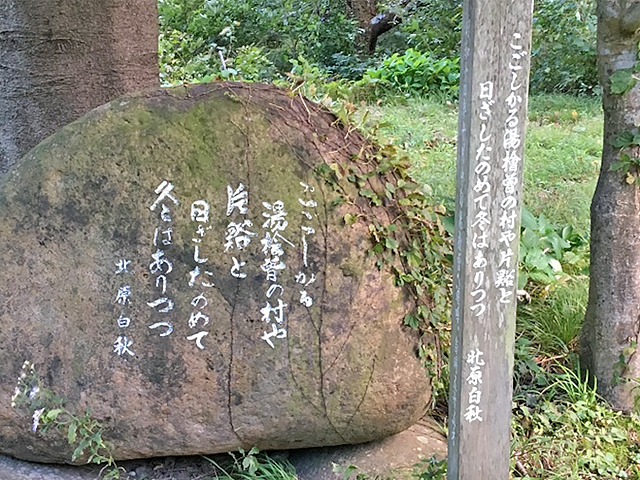 こごしかる
湯檜曽の村や
片谿と
日ざしたのめて
冬はありつつ
北原白秋
こごしかる湯檜曽の村や片谿と
日ざしたのめて冬はありつつ
北原白秋